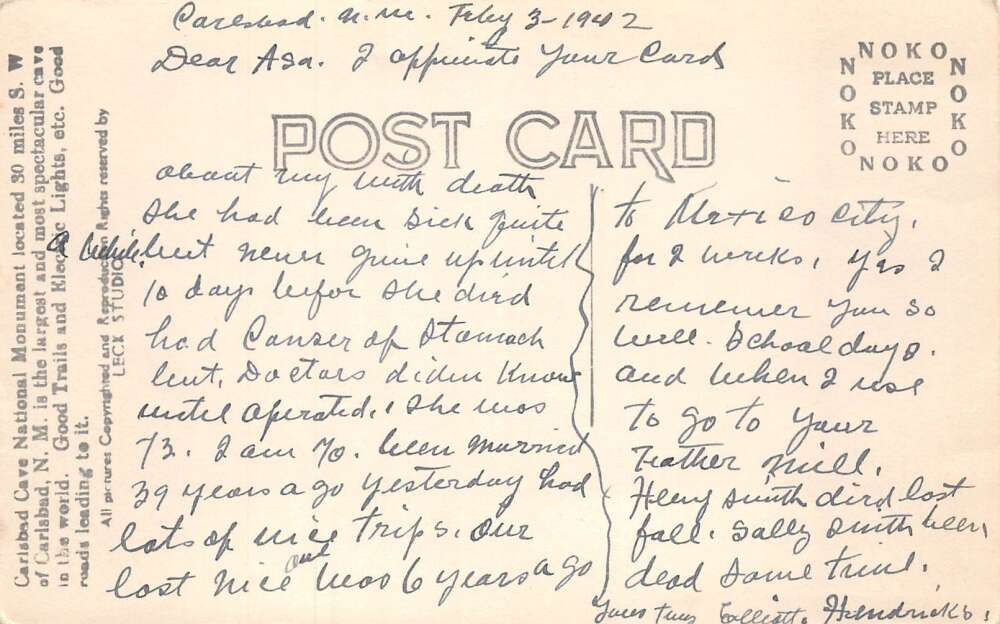 Carlsbad. N.M. Feby 3-1942
Dear Asa. I appriciate Your Card
POST CARD
NOKO
NOKO
PLACE
STAMP
HERE
NOKO
NOKO
about my wife death
She had been Sick Quite
a while. but never give up until
10 days befor She died
had Canser of Stomach
but, Doctors diden Know
until operated. She was
73. I am 70. been married
39 years ago yesterday had
lots of nice trips. our
last nice out was 6 years ago
to Mexico City.
for 2 weeks, yes I
rememer You So
well. School days.
and when I use
to go to Your
Father mill.
Henry Smith died last
fall. Sally Smith been
dead Some time.
Yours truly Elliott. Hendricks.
Carlsbad Cave National Monument located 30 miles S. W
of Carlsbad, N. M. is the largest and most spectacular cave
in the world. Good Trails and Electric Lights, etc. Good
roads leading to it.
All pictures Copyrighted and Reproduction Rights reserved by
LECK STUDIO